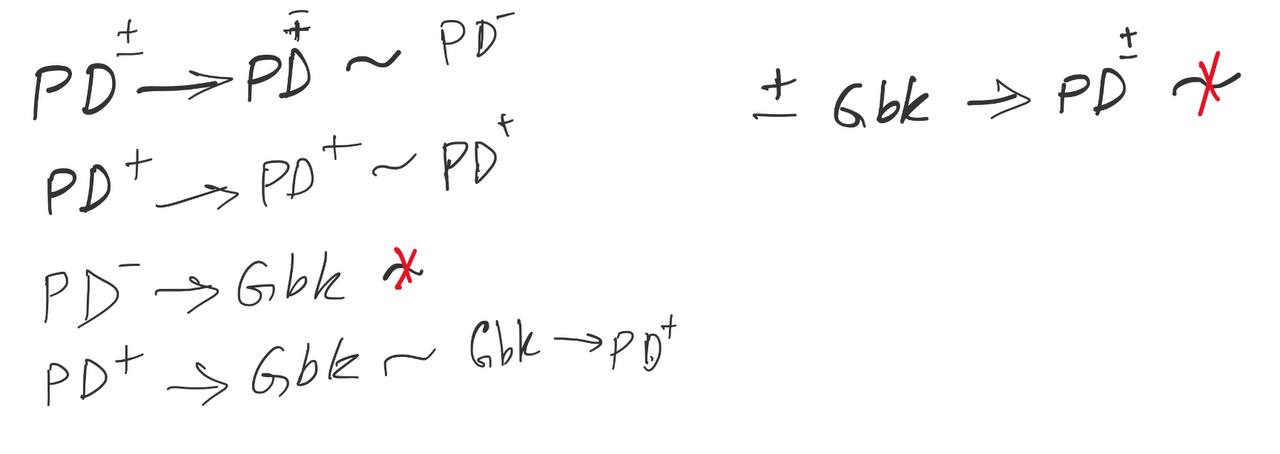 PD± → PD∓ ~ PD⁻
PD⁺ → PD⁺ ~ PD⁺
PD⁻ → Gbk ~
PD⁺ → Gbk ~ Gbk → PD⁺
± Gbk → PD± ~